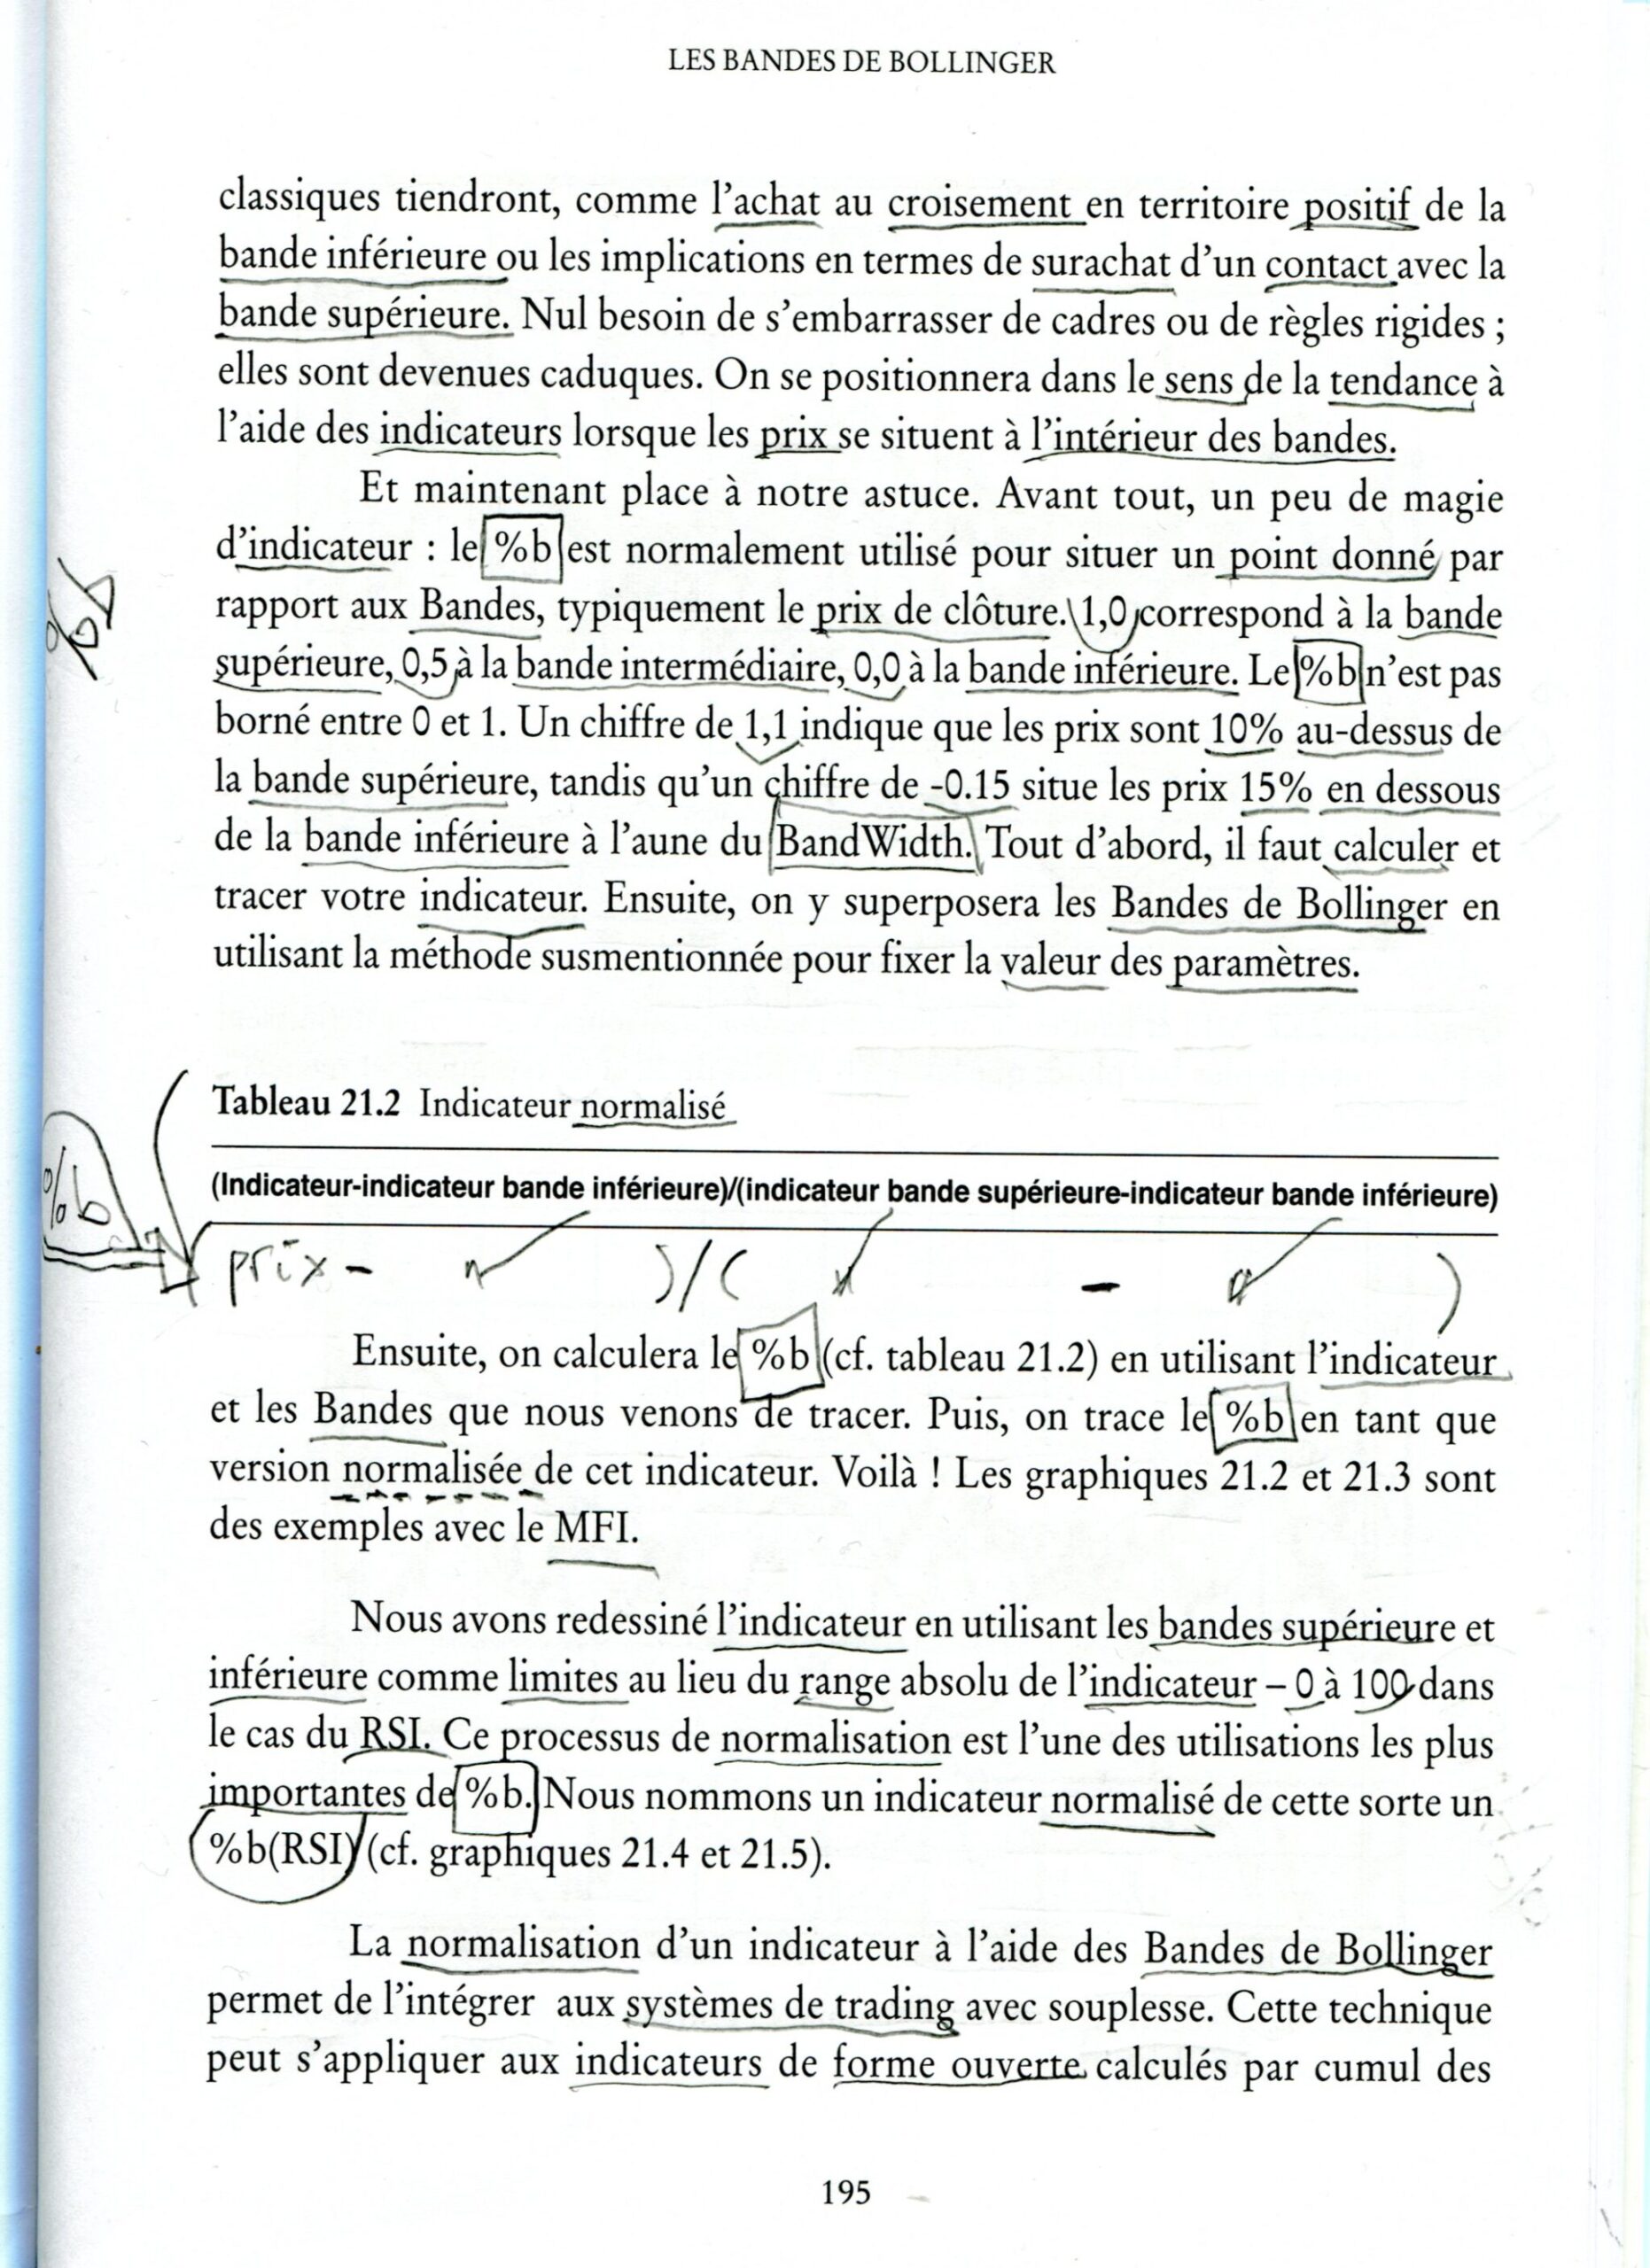 LES BANDES DE BOLLINGER
classiques tiendront, comme l'achat au croisement en territoire positif de la
bande inférieure ou les implications en termes de surachat d'un contact avec la
bande supérieure. Nul besoin de s'embarrasser de cadres ou de règles rigides ;
elles sont devenues caduques. On se positionnera dans le sens de la tendance à
l'aide des indicateurs lorsque les prix se situent à l'intérieur des bandes.
Et maintenant place à notre astuce. Avant tout, un peu de magie
d'indicateur : le %b est normalement utilisé pour situer un point donné par
rapport aux Bandes, typiquement le prix de clôture. 1,0 correspond à la bande
supérieure, 0,5 à la bande intermédiaire, 0,0 à la bande inférieure. Le %b n'est pas
borné entre 0 et 1. Un chiffre de 1,1 indique que les prix sont 10% au-dessus de
la bande supérieure, tandis qu'un chiffre de -0.15 situe les prix 15% en dessous
de la bande inférieure à l'aune du BandWidth. Tout d'abord, il faut calculer et
tracer votre indicateur. Ensuite, on y superposera les Bandes de Bollinger en
utilisant la méthode susmentionnée pour fixer la valeur des paramètres.
%b
Tableau 21.2 Indicateur normalisé
(Indicateur-indicateur bande inférieure)/(indicateur bande supérieure-indicateur bande inférieure)
%b
prix - )/( - )
Ensuite, on calculera le %b (cf. tableau 21.2) en utilisant l'indicateur
et les Bandes que nous venons de tracer. Puis, on trace le %b en tant que
version normalisée de cet indicateur. Voilà ! Les graphiques 21.2 et 21.3 sont
des exemples avec le MFI.
Nous avons redessiné l'indicateur en utilisant les bandes supérieure et
inférieure comme limites au lieu du range absolu de l'indicateur – 0 à 100 dans
le cas du RSI. Ce processus de normalisation est l'une des utilisations les plus
importantes de %b. Nous nommons un indicateur normalisé de cette sorte un
%b(RSI) (cf. graphiques 21.4 et 21.5).
La normalisation d'un indicateur à l'aide des Bandes de Bollinger
permet de l'intégrer aux systèmes de trading avec souplesse. Cette technique
peut s'appliquer aux indicateurs de forme ouverte calculés par cumul des
195